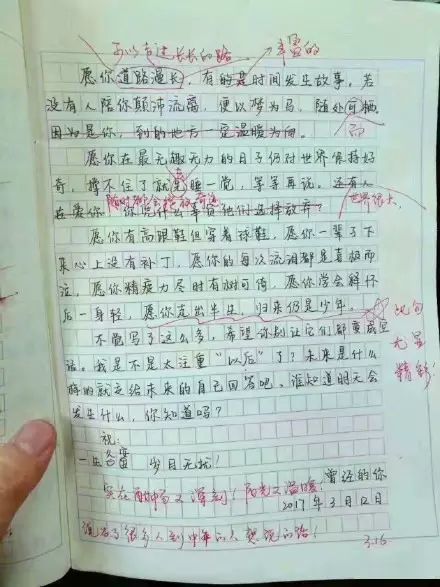 可以奇迹长长的路 丰富的
愿你道路漫长,有的是时间发生故事。若
没有人陪你颠沛流离,便以梦为马,随处可栖。
因为是你,到的地方一定温暖为向。
而
愿你在最无趣无力的日子仍对世界保持好
奇,撑不住了就先睡一觉,等等再说。还有人
在爱你,你凭什么辜负他们选择放弃?
世界很大,
愿你有高跟鞋但穿着球鞋,愿你一辈子下
来心上没有补丁,愿你的每次流泪都是喜极而
泣,愿你精疲力尽时有树可倚,愿你学会释怀
后一身轻,愿你走出半生,归来仍是少年。
此句
不能写了这么多,希望你别让它们都变成空
尤显
话。我是不是太注重“以后”了?未来是什么
精彩!
样的就交给未来的自己回答吧。谁知道明天会
发生什么,你知道吗?
祝:
一生名富 岁月无扰!
实在酣畅又深刻!阳光又温暖,曾经的你
2017年3月12日
很多人到中年的人
3.16